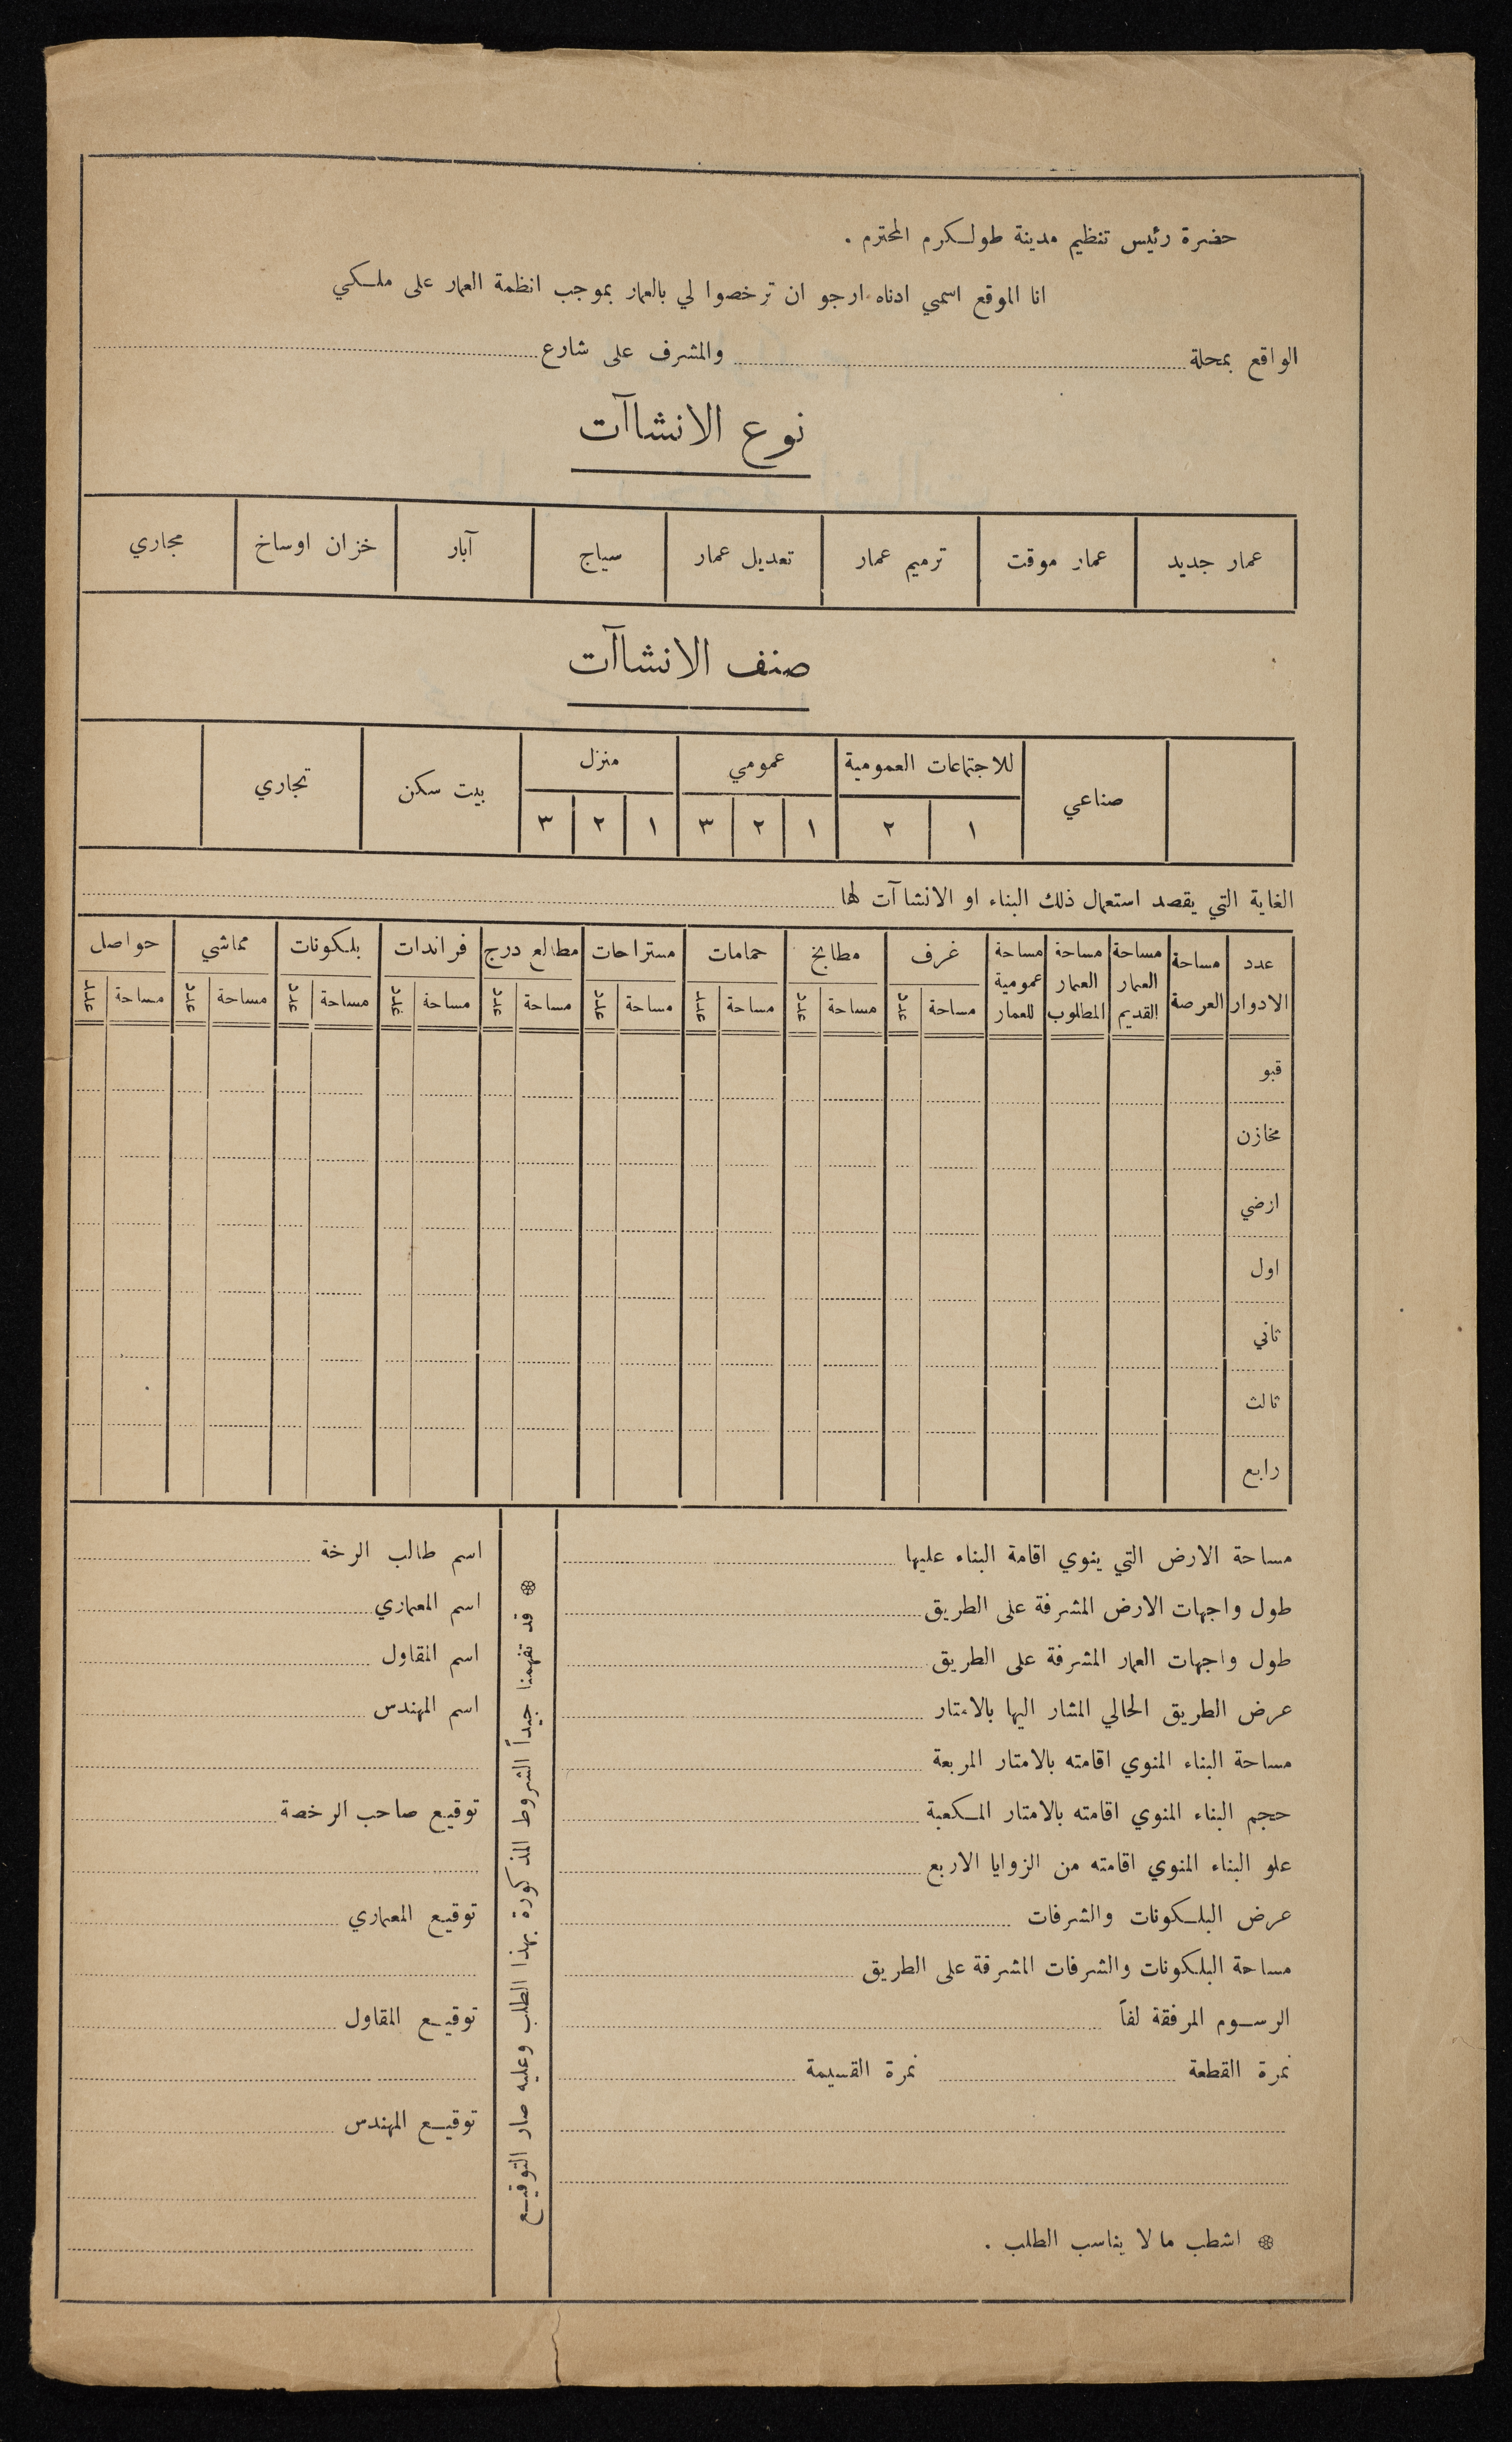 حضرة رئيس تنظيم مدينة طولكرم المحترم .
انا الموقع اسمي ادناه ارجو ان ترخصوا لي بالعمار بموجب انظمة العمار على ملكي
الواقع بمحلة والمشرف على شارع
نوع الانشاآت
عمار جديد عمار موقت ترميم عمار تعديل عمار سياج آبار خزان اوساخ مجاري
صنف الانشاآت
صناعي للاجتماعات العمومية عمومي منزل بيت سكن تجاري
١ ٢ ١ ٢ ٣ ١ ٢ ٣
الغاية التي يقصد استعمال ذلك البناء او الانشاآت لها
عدد الادوار مساحة العرصة مساحة العمار القديم مساحة العمار المطلوب مساحة عمومية للعمار غرف مطابخ حمامات مستراحات مطالع درج فراندات بلكونات مماشي حواصل
مساحة عدد مساحة عدد مساحة عدد مساحة عدد مساحة عدد مساحة عدد مساحة عدد مساحة عدد مساحة عدد
قبو
مخازن
ارضي
اول
ثاني
ثالث
رابع
مساحة الارض التي ينوي اقامة البناء عليها
طول واجهات الارض المشرفة على الطريق
طول واجهات العمار المشرفة على الطريق
عرض الطريق الحالي المشار اليها بالامتار
مساحة البناء المنوي اقامته بالامتار المربعة
حجم البناء المنوي اقامته بالامتار المكعبة
علو البناء المنوي اقامته من الزوايا الاربع
عرض البلكونات والشرفات
مساحة البلكونات والشرفات المشرفة على الطريق
الرسوم المرفقة لفاً
نمرة القطعة نمرة القسيمة
❁ اشطب ما لا يناسب الطلب .
❁ قد تفهمنا جيداً الشروط المذكورة بهذا الطلب وعليه صار التوقيع
اسم طالب الرخة
اسم المعماري
اسم المقاول
اسم المهندس
توقيع صاحب الرخصة
توقيع المعماري
توقيع المقاول
توقيع المهندس